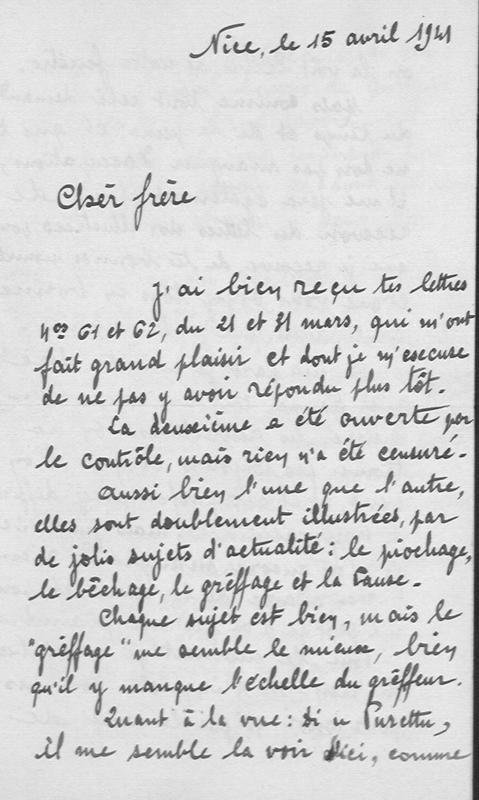 Nice, le 15 avril 1941
Cher frère
J'ai bien reçu tes lettres
nos 61 et 62, du 21 et 31 mars, qui m'ont
fait grand plaisir et dont je m'excuse
de ne pas y avoir répondu plus tôt.
La deuxième a été ouverte par
le contrôle, mais rien n'a été censuré.
Aussi bien l'une que l'autre,
elles sont doublement illustrées, par
de jolis sujets d'actualité : le piochage,
le bêchage, le grêffage et la Pause.
Chaque sujet est bien, mais le
"grêffage" me semble le mieux, bien
qu'il y manque l'échelle du grêffeur.
Quant à la vue : Di u Purettu,
il me semble la voir d'ici, comme